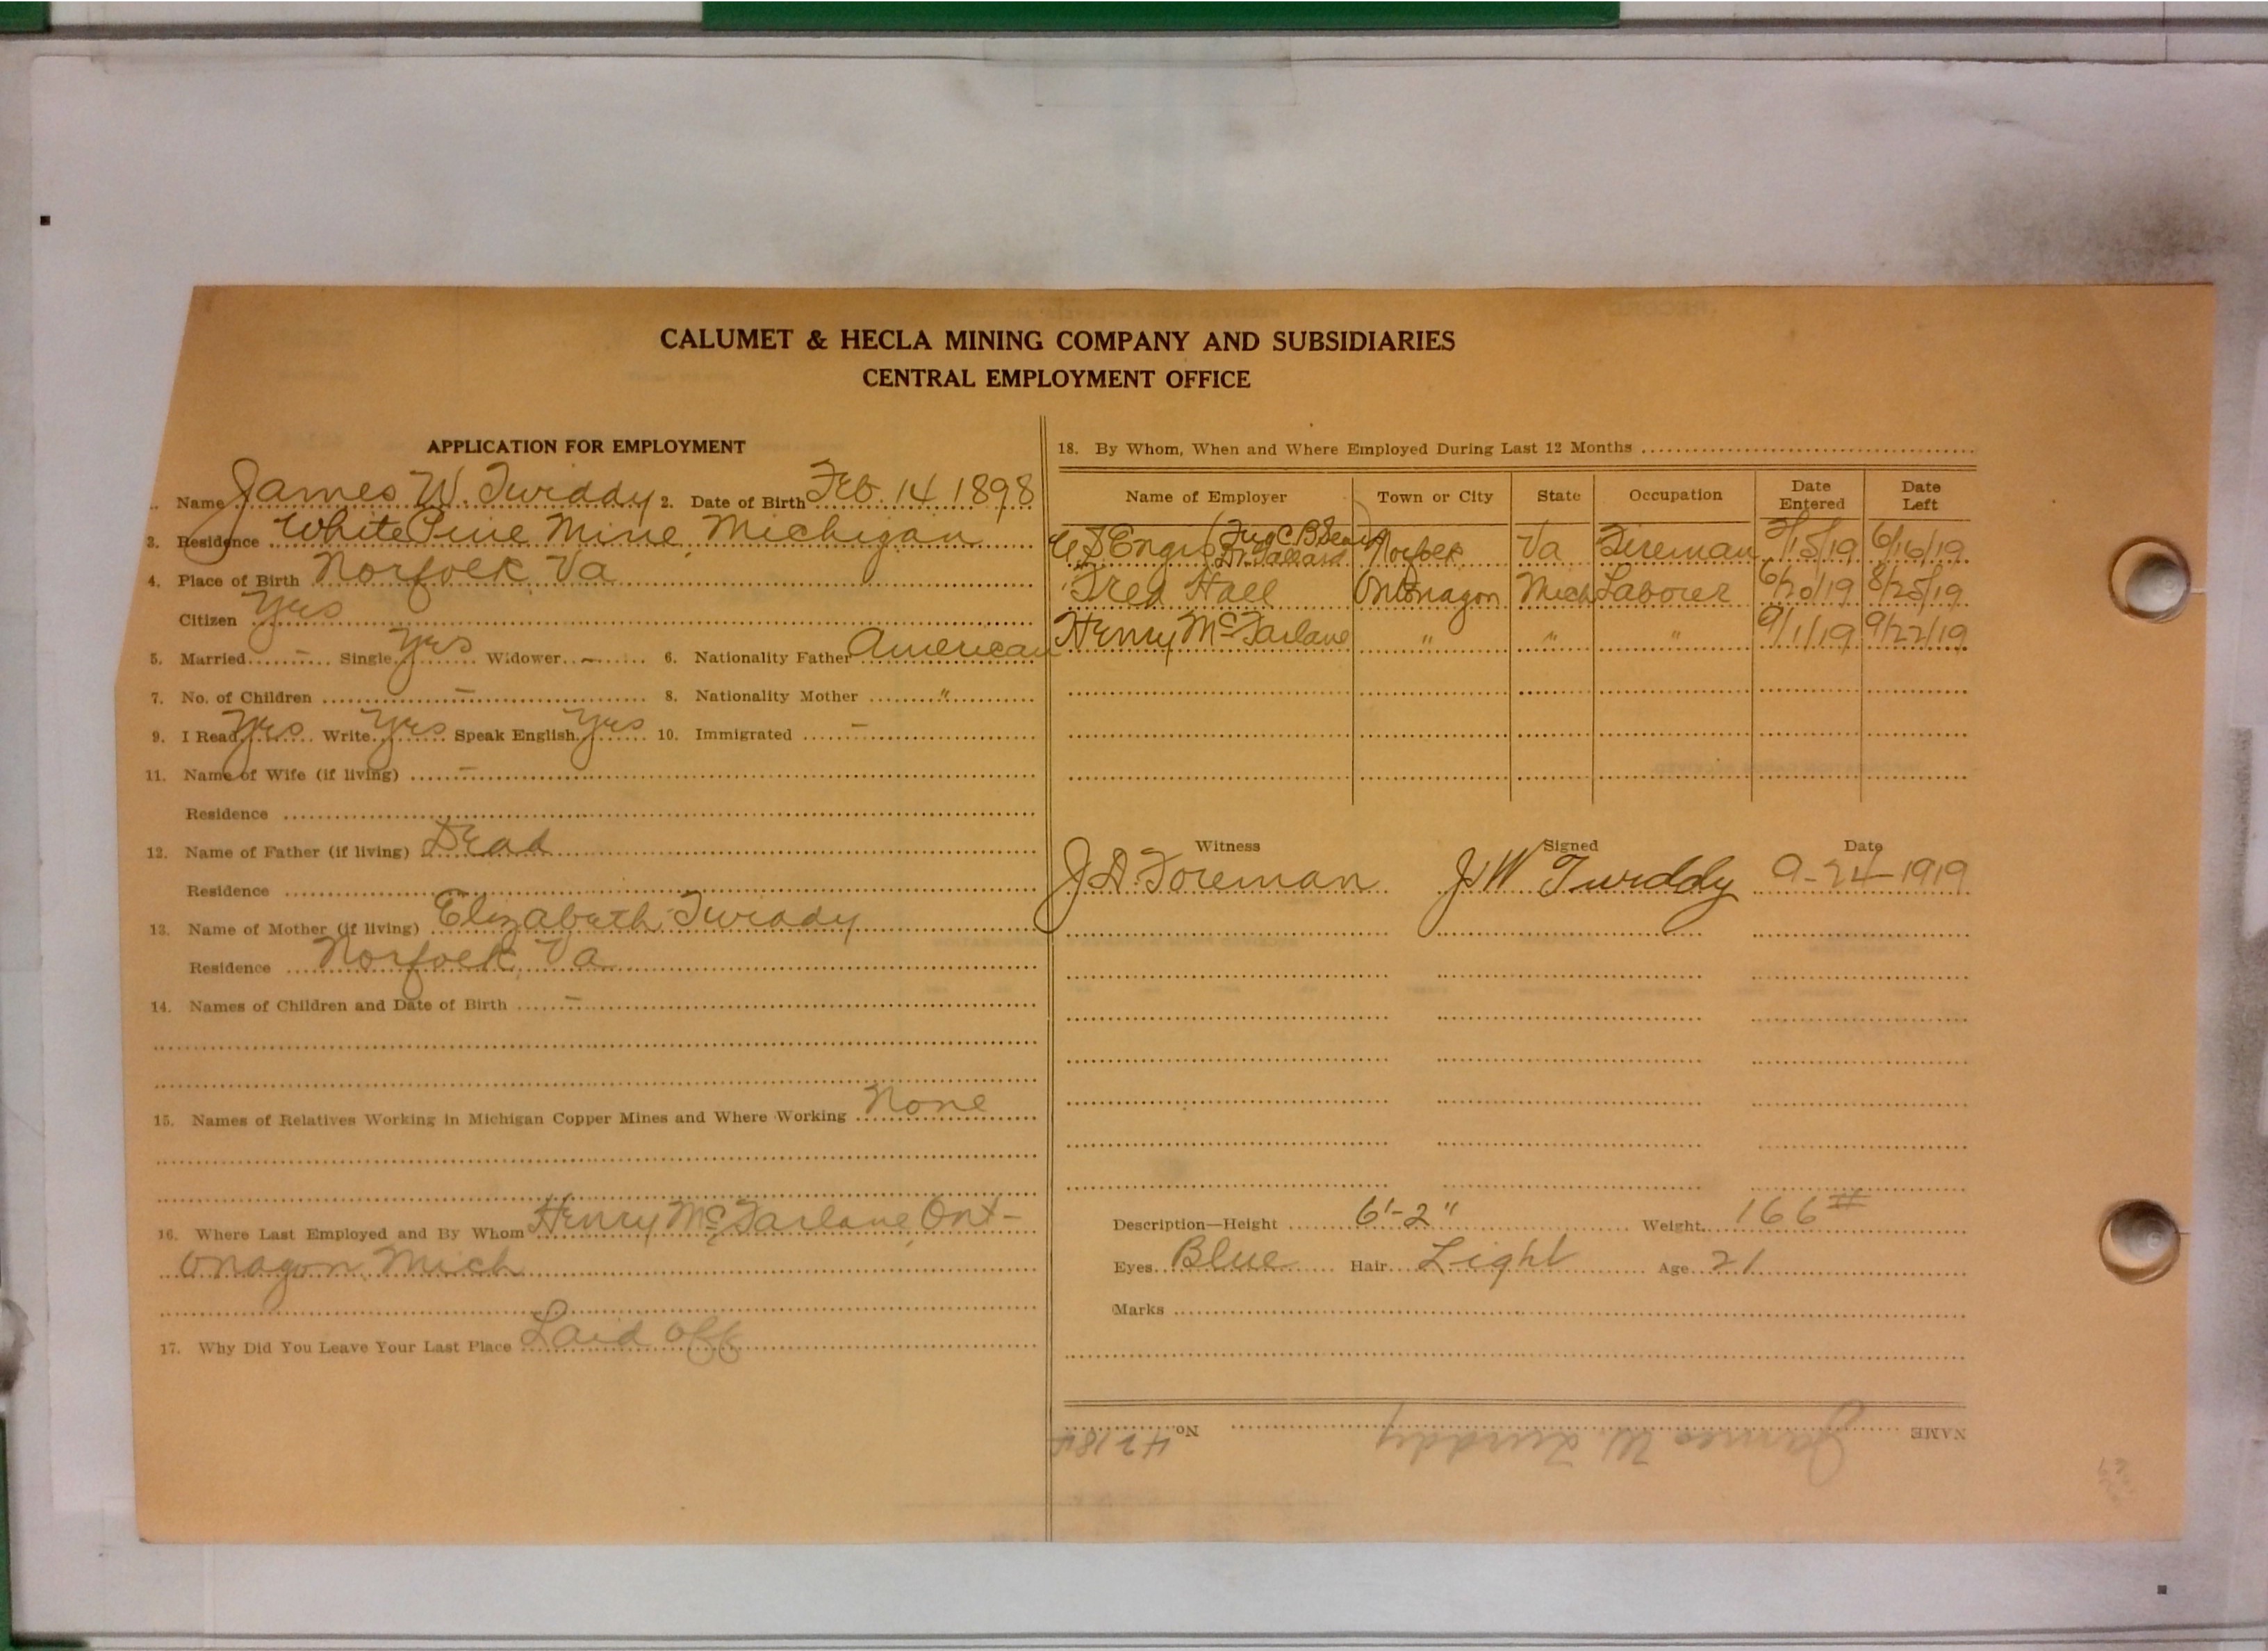 CALUMET & HECLA MINING COMPANY AND SUBSIDIARIES
CENTRAL EMPLOYMENT OFFICE
APPLICATION FOR EMPLOYMENT
Name James W. Twiddy 2. Date of Birth Feb. 14 1898
3. Residence White Pine Mine, Michigan
4. Place of Birth Norfolk, Va
Citizen Yes
5. Married - Single Yes Widower - 6. Nationality Father American
7. No. of Children - 8. Nationality Mother "
9. I Read Yes Write Yes Speak English Yes 10. Immigrated -
11. Name of Wife (if living) -
Residence
12. Name of Father (if living) Dead
Residence
13. Name of Mother (if living) Elizabeth Twiddy
Residence Norfolk, Va
14. Names of Children and Date of Birth -
15. Names of Relatives Working in Michigan Copper Mines and Where Working None
16. Where Last Employed and By Whom Henry McFarlane, Ont-
onagon, Mich
17. Why Did You Leave Your Last Place Laid off
18. By Whom, When and Where Employed During Last 12 Months
Name of Employer Town or City State Occupation Date Entered Date Left
U.S. Engrs Norfolk Va Fireman 6/16/19
Fred Hall Ontonagon Mich Laborer 6/20/19 8/25/19
Henry McFarlane " " " 9/1/19 9/22/19
Witness Signed Date
J.D. Foreman J W Twiddy 9-24-1919
Description—Height 6'-2" Weight 166#
Eyes Blue Hair Light Age 21
Marks
NAME James W. Twiddy No. 42184